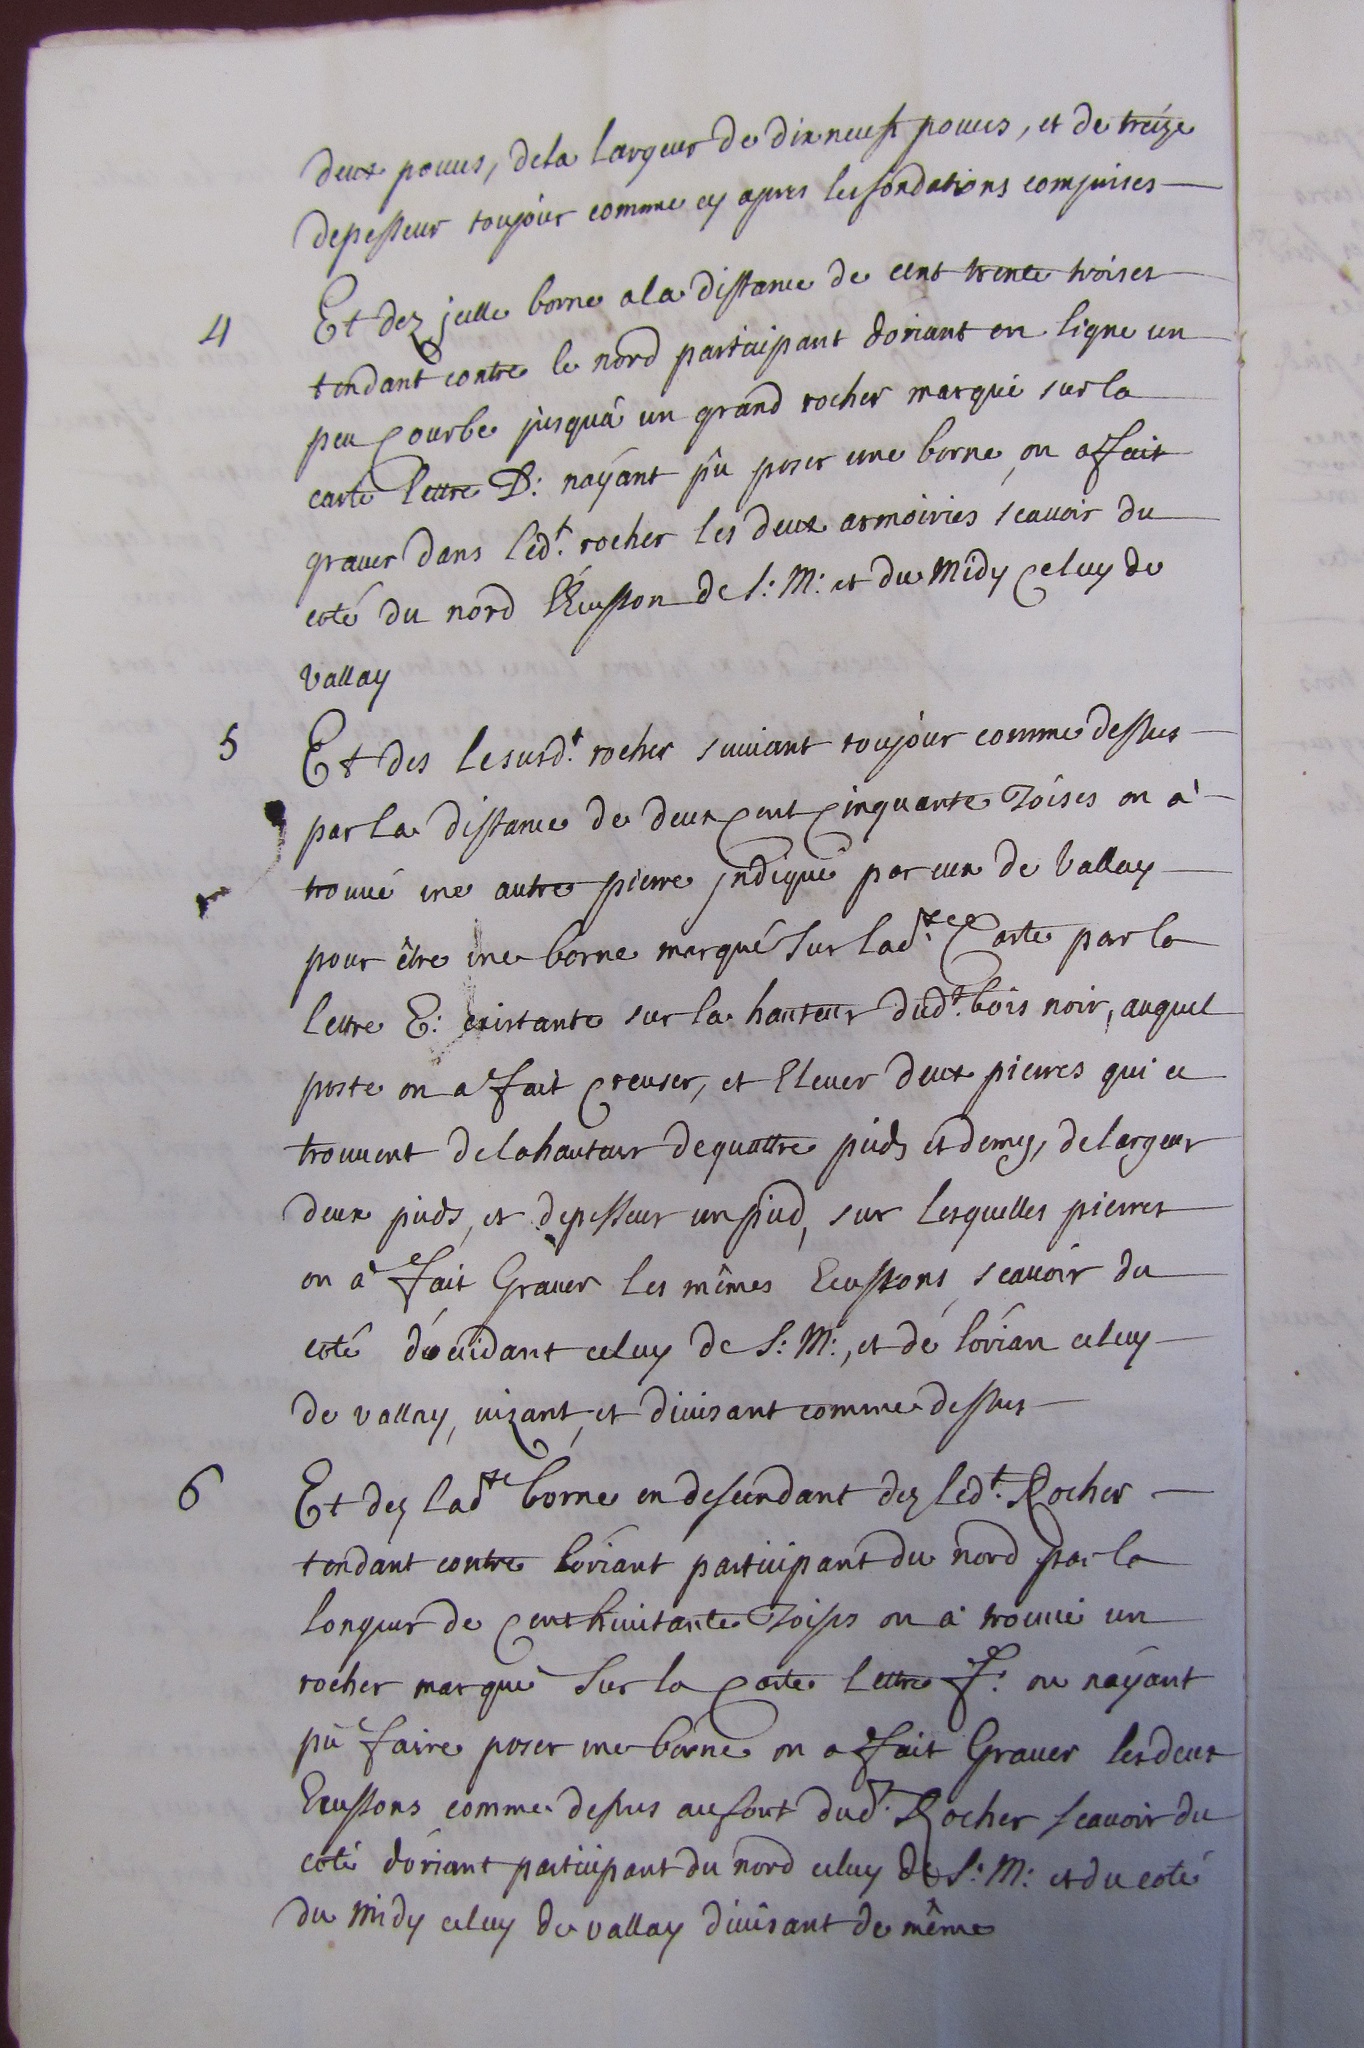 deux pouces, dela largeur de dix neuf pouces, et de treize
depesseur toujour comme cy apres les fondations comprises
4 Et dez jcelle borne ala distance de cent trente troises
tendant contre le nord participant doriant en ligne un
peu Courbe jusquà un grand rocher marqué sur la
carte lettre D: nayant pû poser une borne, on a fait
graver dans led.t rocher les deux armoiries scavoir du
coté du nord lEcusson de S: M: et du Midy Celuy de
Vallay
5 Et des lesusd.t rocher suivant toujour comme dessus
par la distance de deux Cent Cinquante Toises on à
trouvé une autre pierre jndiqué par eux de Vallay
pour être une borne marqué sur lad.te Carte par la
lettre E: existante sur la hauteur dud.t bois noir, auquel
poste on a fait Creuser, et Elever deux pierres qui ce
trouvent de la hauteur de quattre pieds et demy, de largeur
deux pieds, et depesseur un pied, sur lesquelles pierres
on à fait Graver les mêmes Ecussons scavoir du
coté doccidant celuy de S: M:, et de lorian celuy
de vallay, vizant, et divisant comme dessus
6 Et dez lad.te borne en descendant dez led.t Rocher
tendant contre loriant participant du nord par la
longueur de Cent huitante Toises on à trouvé un
rocher marqué sur la Carte lettre F: ou nayant
pû faire poser une borne on a fait Graver les deux
Ecussons comme dessus au font dud.t Rocher scavoir du
coté doriant participant du nord celuy de S: M: et du coté
du Midy celuy de vallay divisant de même